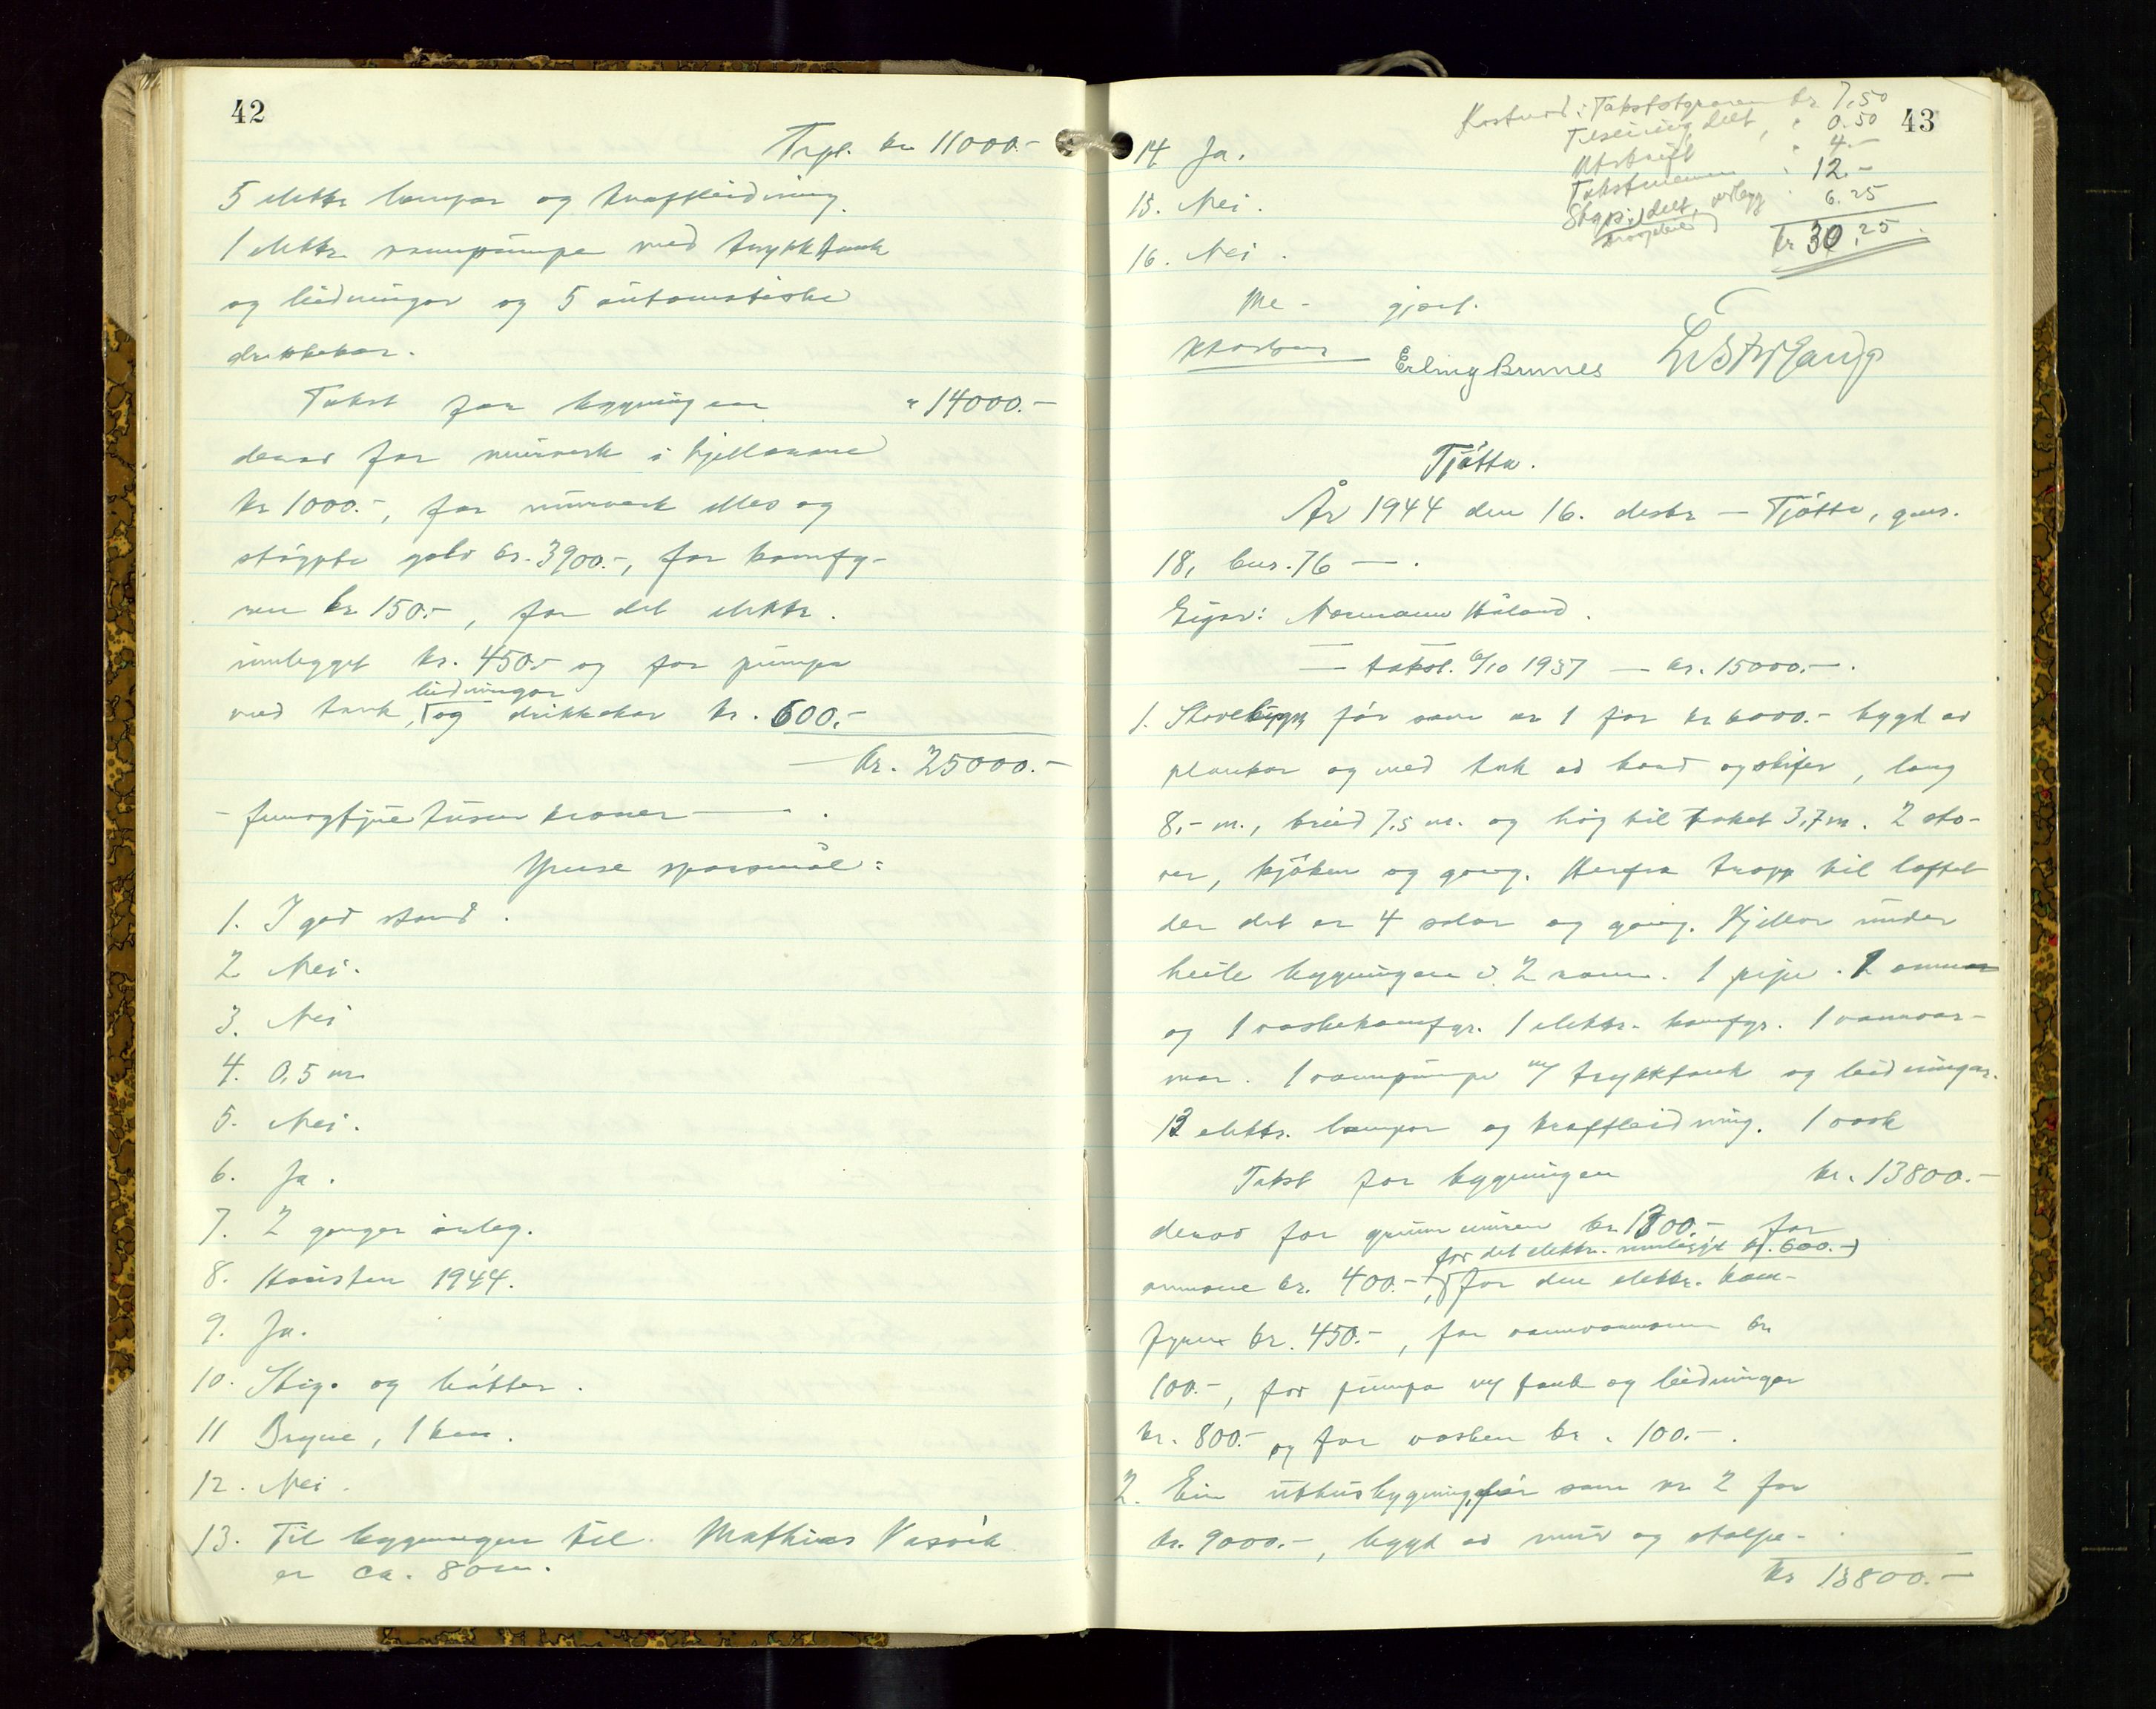 42
Trpl. kr 11000.-
5 elektr lampor og kraftleidning.
1 elektr vannpumpe med trykktank
og leidningar og 5 automatiske
drikkekar.
Takst for bygningen " 14000.-
derav for murverk i kjellarane
kr 1000.-, for murverk elles og
støypte golv kr. 3900.-, for komfy-
ren kr 150.-, for det elektr.
innlegget kr. 450.- og for pumpa
leidningar
med tank, og drikkekar kr. 600.-
kr. 25000.-
- femogtjue tusen kroner - .
Ymse spørsmål:
1. I god stand.
2 Nei.
3. Nei
4. 0,5 m
5. Nei.
6. Ja.
7. 2 gonger årleg.
8. Hausten 1944.
9. Ja.
10. Stige og bøtter.
11 Bryne, 1 km.
12. Nei.
13. Til bygningen til Mathias Vasvik
er ca. 80 m.
43
Kostnad: Takstutgreiing kr 7,50
delt " 0.50
Utskrift " 4.-
Takstmenn " 12.-
delt, vedlegg " 6.25
kr 30,25
14 Ja.
15. Nei.
16. Nei.
Me - gjort.
Erling Brunes
Tjøtta.
År 1944 den 16. desbr - Tjøtta, gnr.
18, bnr. 76 - .
Eigar: Normann Håland.
- takst. 6/10 1937 - kr. 15000.-.
1. Stovebygn før som nr 1 for kr 6000.- bygd av
plankar og med tak av bord og skifer, lang
8,- m., breid 7,5 m. og høg til taket 3,7 m. 2 sto-
ver, kjøken og gang. Herfra trapp til loftet
der det er 4 salar og gang. Kjellar under
heile bygningen i 2 rom. 1 pipe. 2 omnar
og 1 vaskekomfyr. 1 elektr. komfyr. 1 vannvar-
mar. 1 vannpumpe m/ trykktank og leidningar.
13 elektr. lampor og kraftleidning. 1 vask
Takst for bygningen kr. 13800.-
derav for grunnmuren kr 1800.- for
for det elektr. innlegget kr. 600.-,
omnane kr. 400.-, for den elektr. kom-
fyren kr. 450.-, for vannvarmaren kr
100.-, for pumpa m/ tank og leidningar
kr. 800.- og for vasken kr. 100.-.
2. Ein uthusbygning, før som nr 2 for
kr. 9000.-, bygd av mur og stolpe-
kr 13800.-